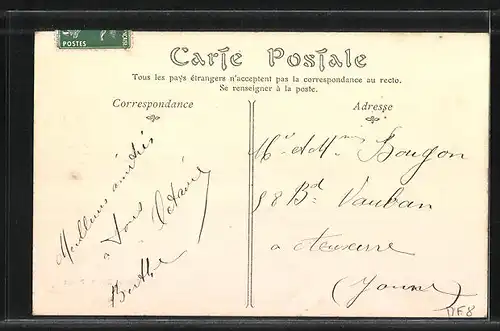 POSTES
Carte Postale
Tous les pays étrangers n'acceptent pas la correspondance au recto.
Se renseigner à la poste.
Correspondance
Adresse
Meilleures amitiés
à tous
Berthe
Mr et Mme Bougon
58 Bd Vauban
à Auxerre
(Yonne)